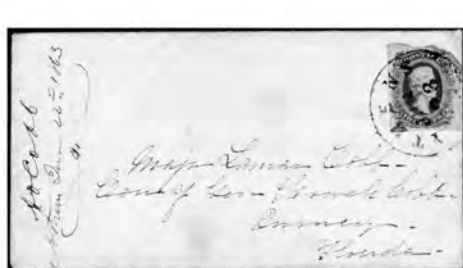 Cobb
Athens 22nd 1863
Majr Lamar Cobb
Care of Gen- Howell Cobb-
Quincey-
Florida-